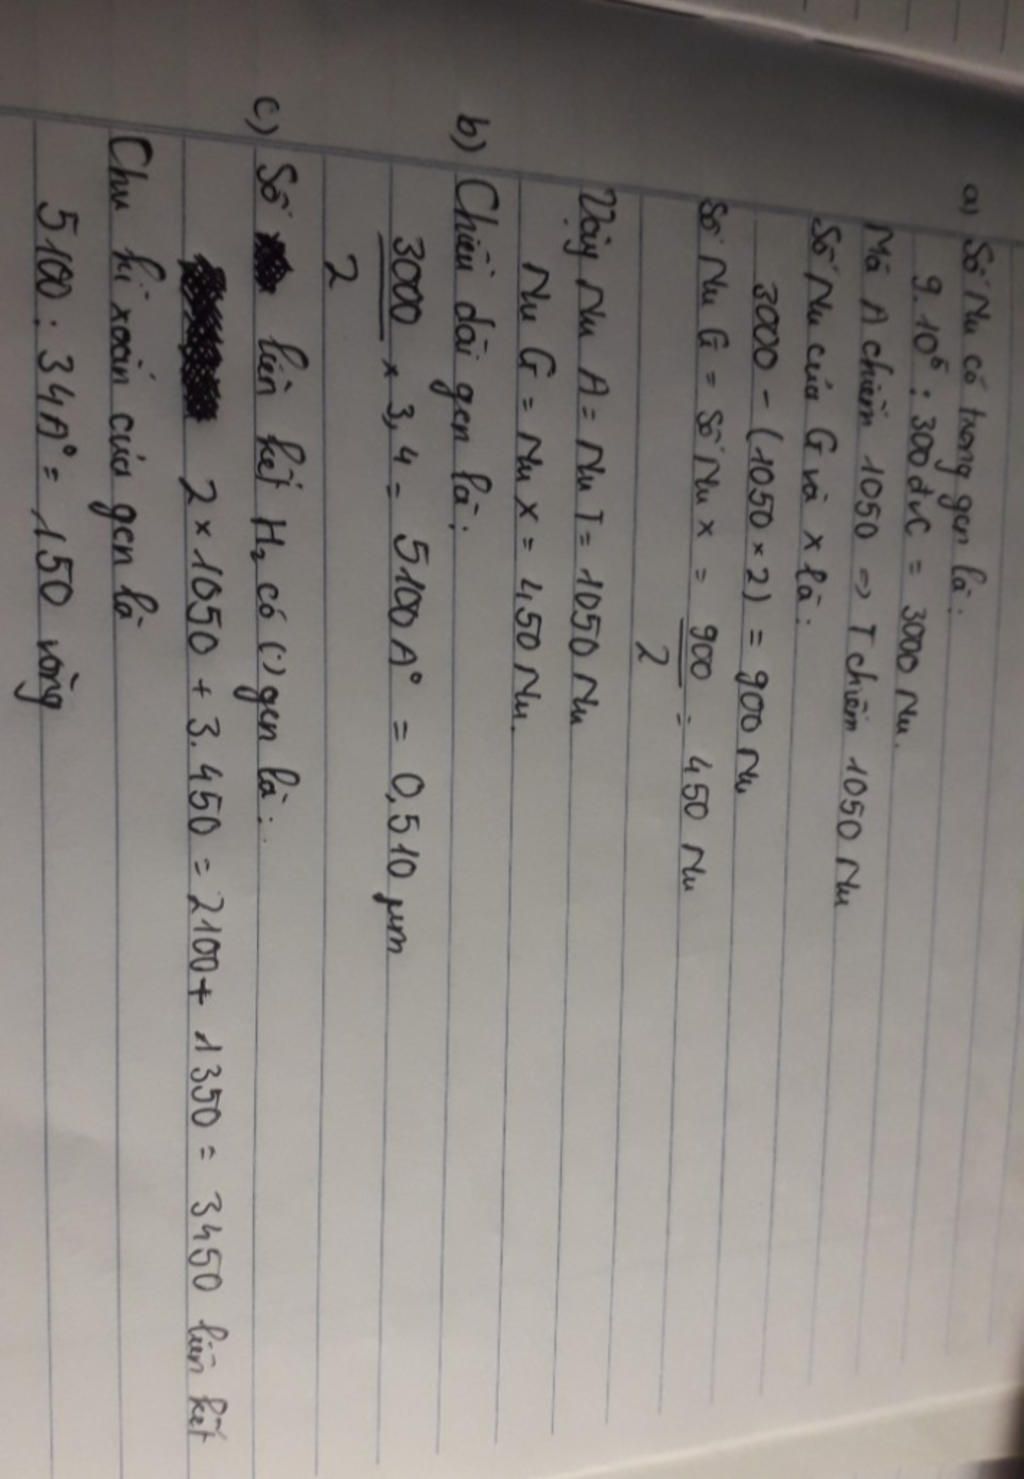 a) Số Nu có trong gen là:
9.10⁵ : 300 đvC = 3000 Nu.
Mà A chiếm 1050 => T chiếm 1050 Nu
Số Nu của G và X là:
3000 - (1050 × 2) = 900 Nu
Số Nu G = Số Nu X = 900/2 = 450 Nu
Vậy Nu A = Nu T = 1050 Nu
Nu G = Nu X = 450 Nu.
b) Chiều dài gen là:
3000/2 × 3,4 = 5100 A° = 0,510 µm
c) Số liên kết H₂ có (') gen là:
2 × 1050 + 3.450 = 2100 + 1350 = 3450 liên kết
Chu kì xoắn của gen là
5100 : 34A° = 150 vòng